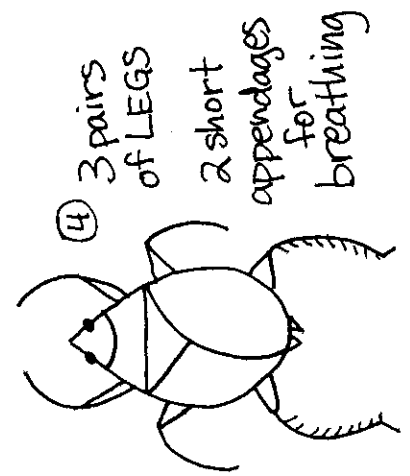 ④
3 pairs
of LEGS
2 short
appendages
for
breathing